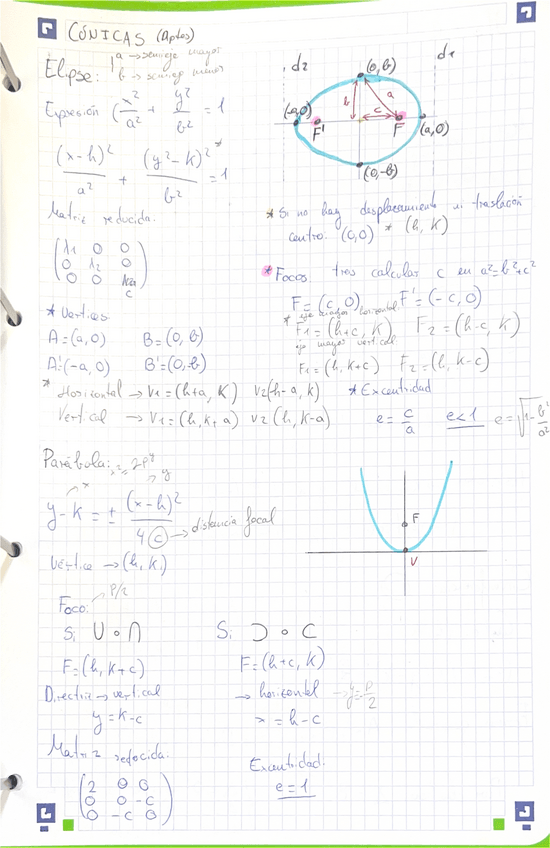 CÓNICAS (Aptos)
Elipse: a → semieje mayor
b → semieje menor
Expresión (x²/a² + y²/b² = 1
(x-h)²/a² + (y²-K)²/b² = 1 *
Matriz reducida.
λ1 0 0
0 λ2 0
0 0
d2
d1
(0,b)
(-a,0)
F'
b
a
c
F
(a,0)
(0,-b)
* Si no hay desplazamiento ni traslación
centro: (0,0) * (h, K)
* Focos: tras calcular c en a²=b²+c²
F=(c,0) F'=(-c,0)
* eje mayor horizontal
F1=(h+c, K) F2=(h-c, K)
eje mayor vertical
F1=(h, K+c) F2=(h, K-c)
* Vertices
A=(a,0) B=(0,b)
A'(-a,0) B'=(0,-b)
* Horizontal → V1=(h+a, K) V2(h-a, K)
Vertical → V1=(h, K+a) V2(h, K-a)
* Excentridad
e = c/a e<1 e=√1-b²/a²
Parábola: x²=2py
y-K = ± (x-h)²/4c → distancia focal
Vértice → (h, K)
F
V
Foco: P/2
Si U o ∩
F=(h, K+c)
Directriz → vertical
y=K-c
Si ⊃ o C
F=(h+c, K)
→ horizontal → y=-P/2
x=h-c
Matriz redocida.
2 0 0
0 0 -c
0 -c 0
Excentridad:
e=1